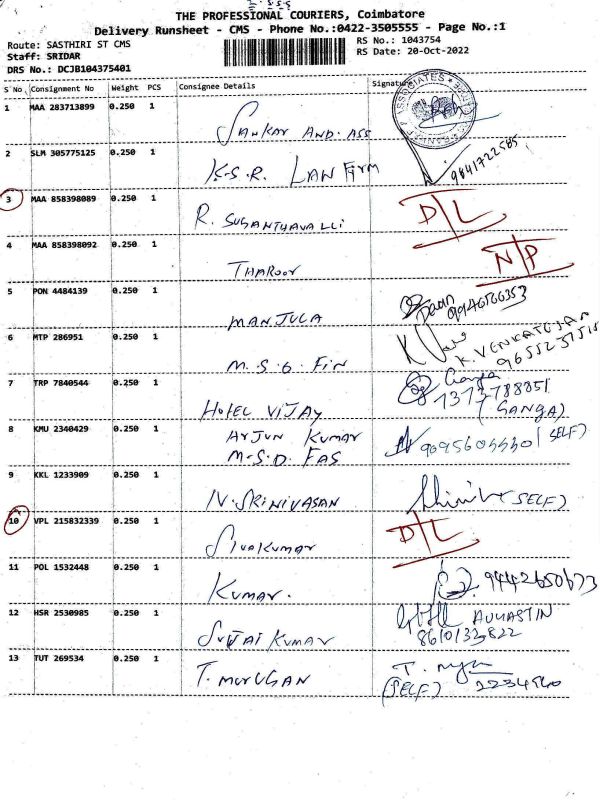 THE PROFESSIONAL COURIERS, Coimbatore
Delivery Runsheet - CMS - Phone No.:0422-3505555 - Page No.:1
Route: SASTHIRI ST CMS
RS No.: 1043754
Staff: SRIDAR
RS Date: 20-Oct-2022
DRS No.: DCJB104375401
S No Consignment No Weight PCS Consignee Details Signature
1 MAA 283713899 0.250 1 SANKAR AND. ASS
2 SLM 305775125 0.250 1 K.S.R. LAW FIRM 9841722585
3 MAA 858398089 0.250 1 R. SUGANTHAVALLI D/L
4 MAA 858398092 0.250 1 THAROOR N/P
5 PON 4484139 0.250 1 MANJULA
6 MTP 286951 0.250 1 M.S.G. FIN K. VENKATESAN
7 TRP 7840544 0.250 1 HOTEL VIJAY Ganga 7373788851 (GANGA)
8 KMU 2340429 0.250 1 ARJUN KUMAR M.S.D. FAS (SELF)
9 KKL 1233909 0.250 1 N. SRINIVASAN (SELF)
10 VPL 215832339 0.250 1 SIVAKUMAR D/L
11 POL 1532448 0.250 1 KUMAR. 9442650673
12 HSR 2530985 0.250 1 SUJAI KUMAR
13 TUT 269534 0.250 1 T. MURUGAN (SELF)